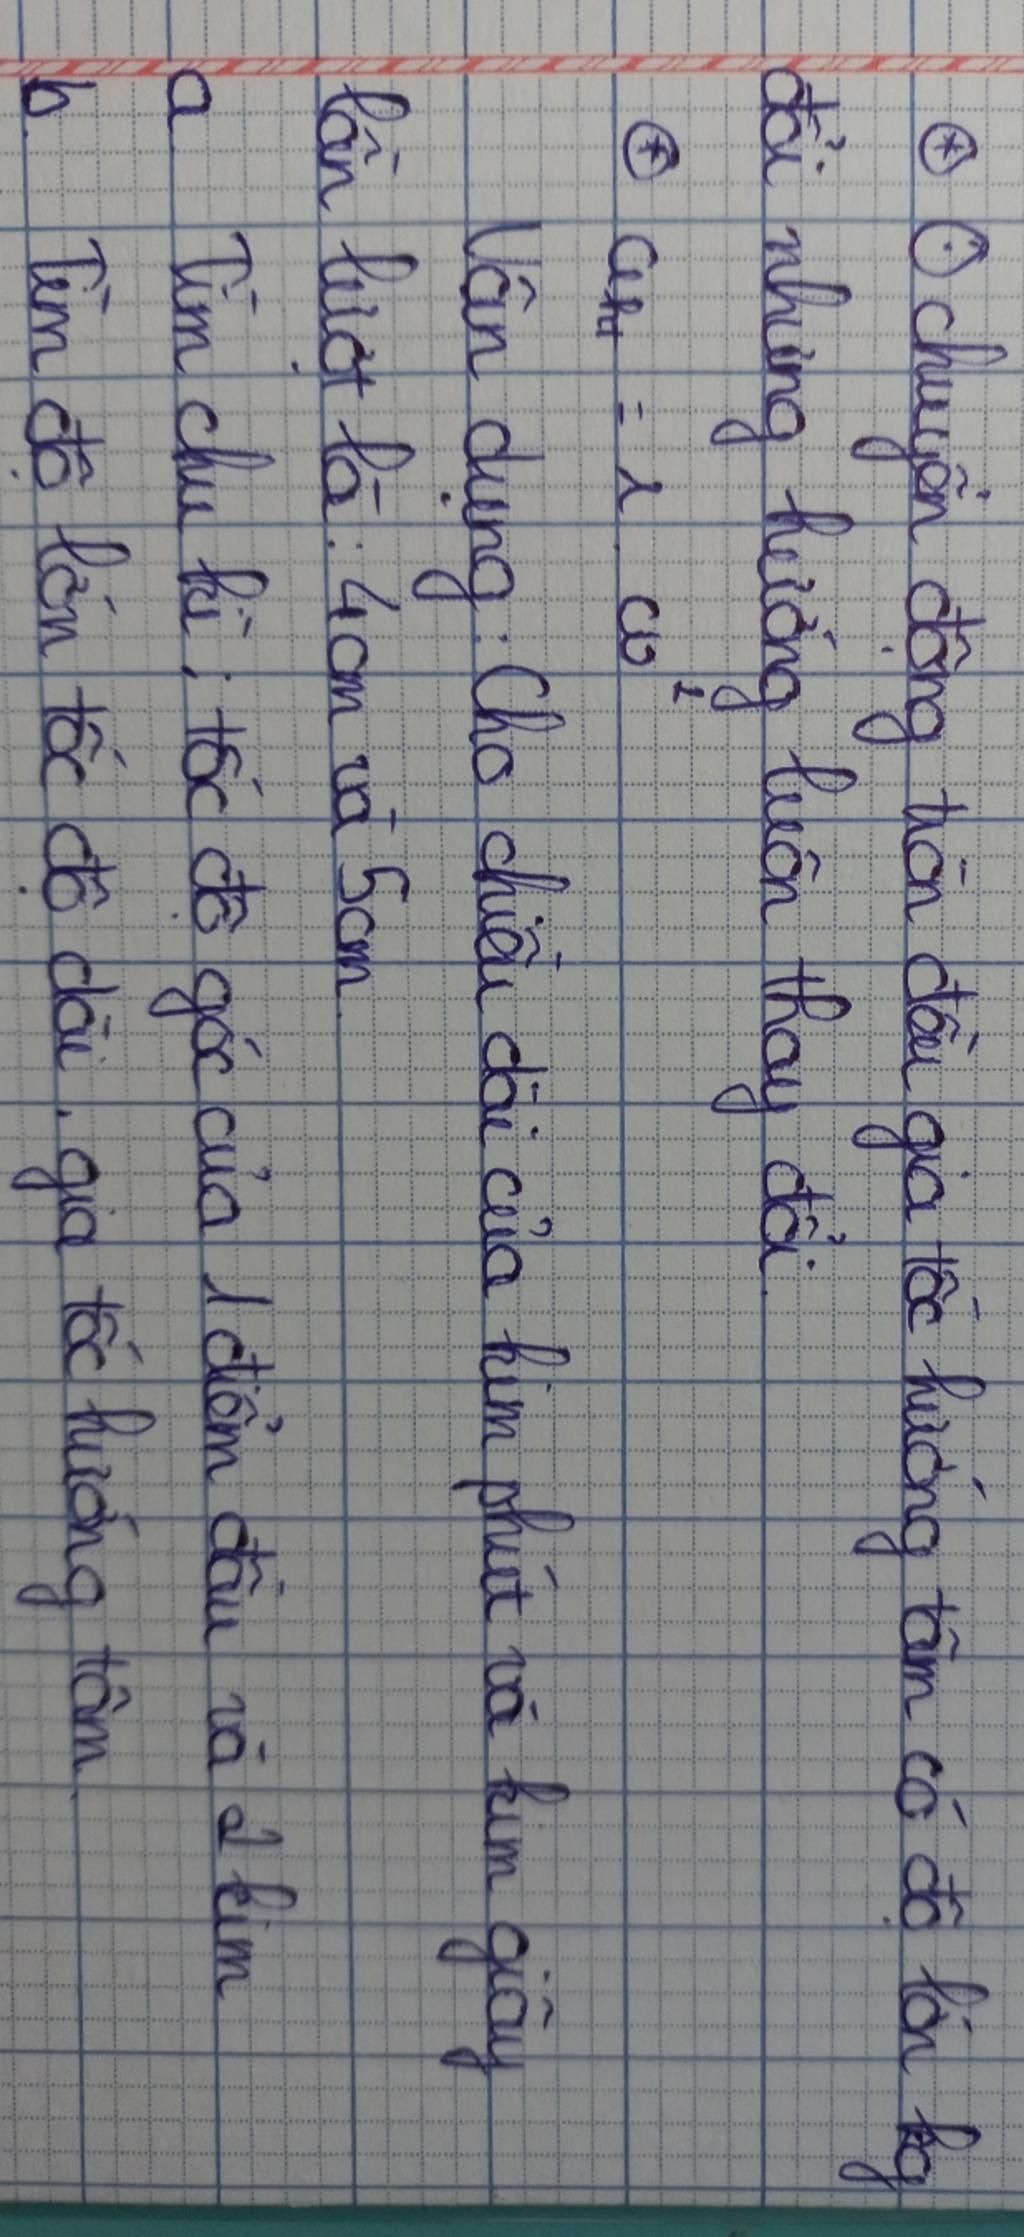 ⊛ Ở chuyển động tròn đều gia tốc hướng tâm có độ lớn kg
đổi nhưng hướng luôn thay đổi.
⊛ aht = r . ω²
Vận dụng : Cho chiều dài của kim phút và kim giây
lần lượt là : 4cm và 5cm
a Tìm chu kì ; tốc độ góc của 1 điểm đầu và 2 kim
b. Tìm độ lớn tốc độ dài, gia tốc hướng tâm.